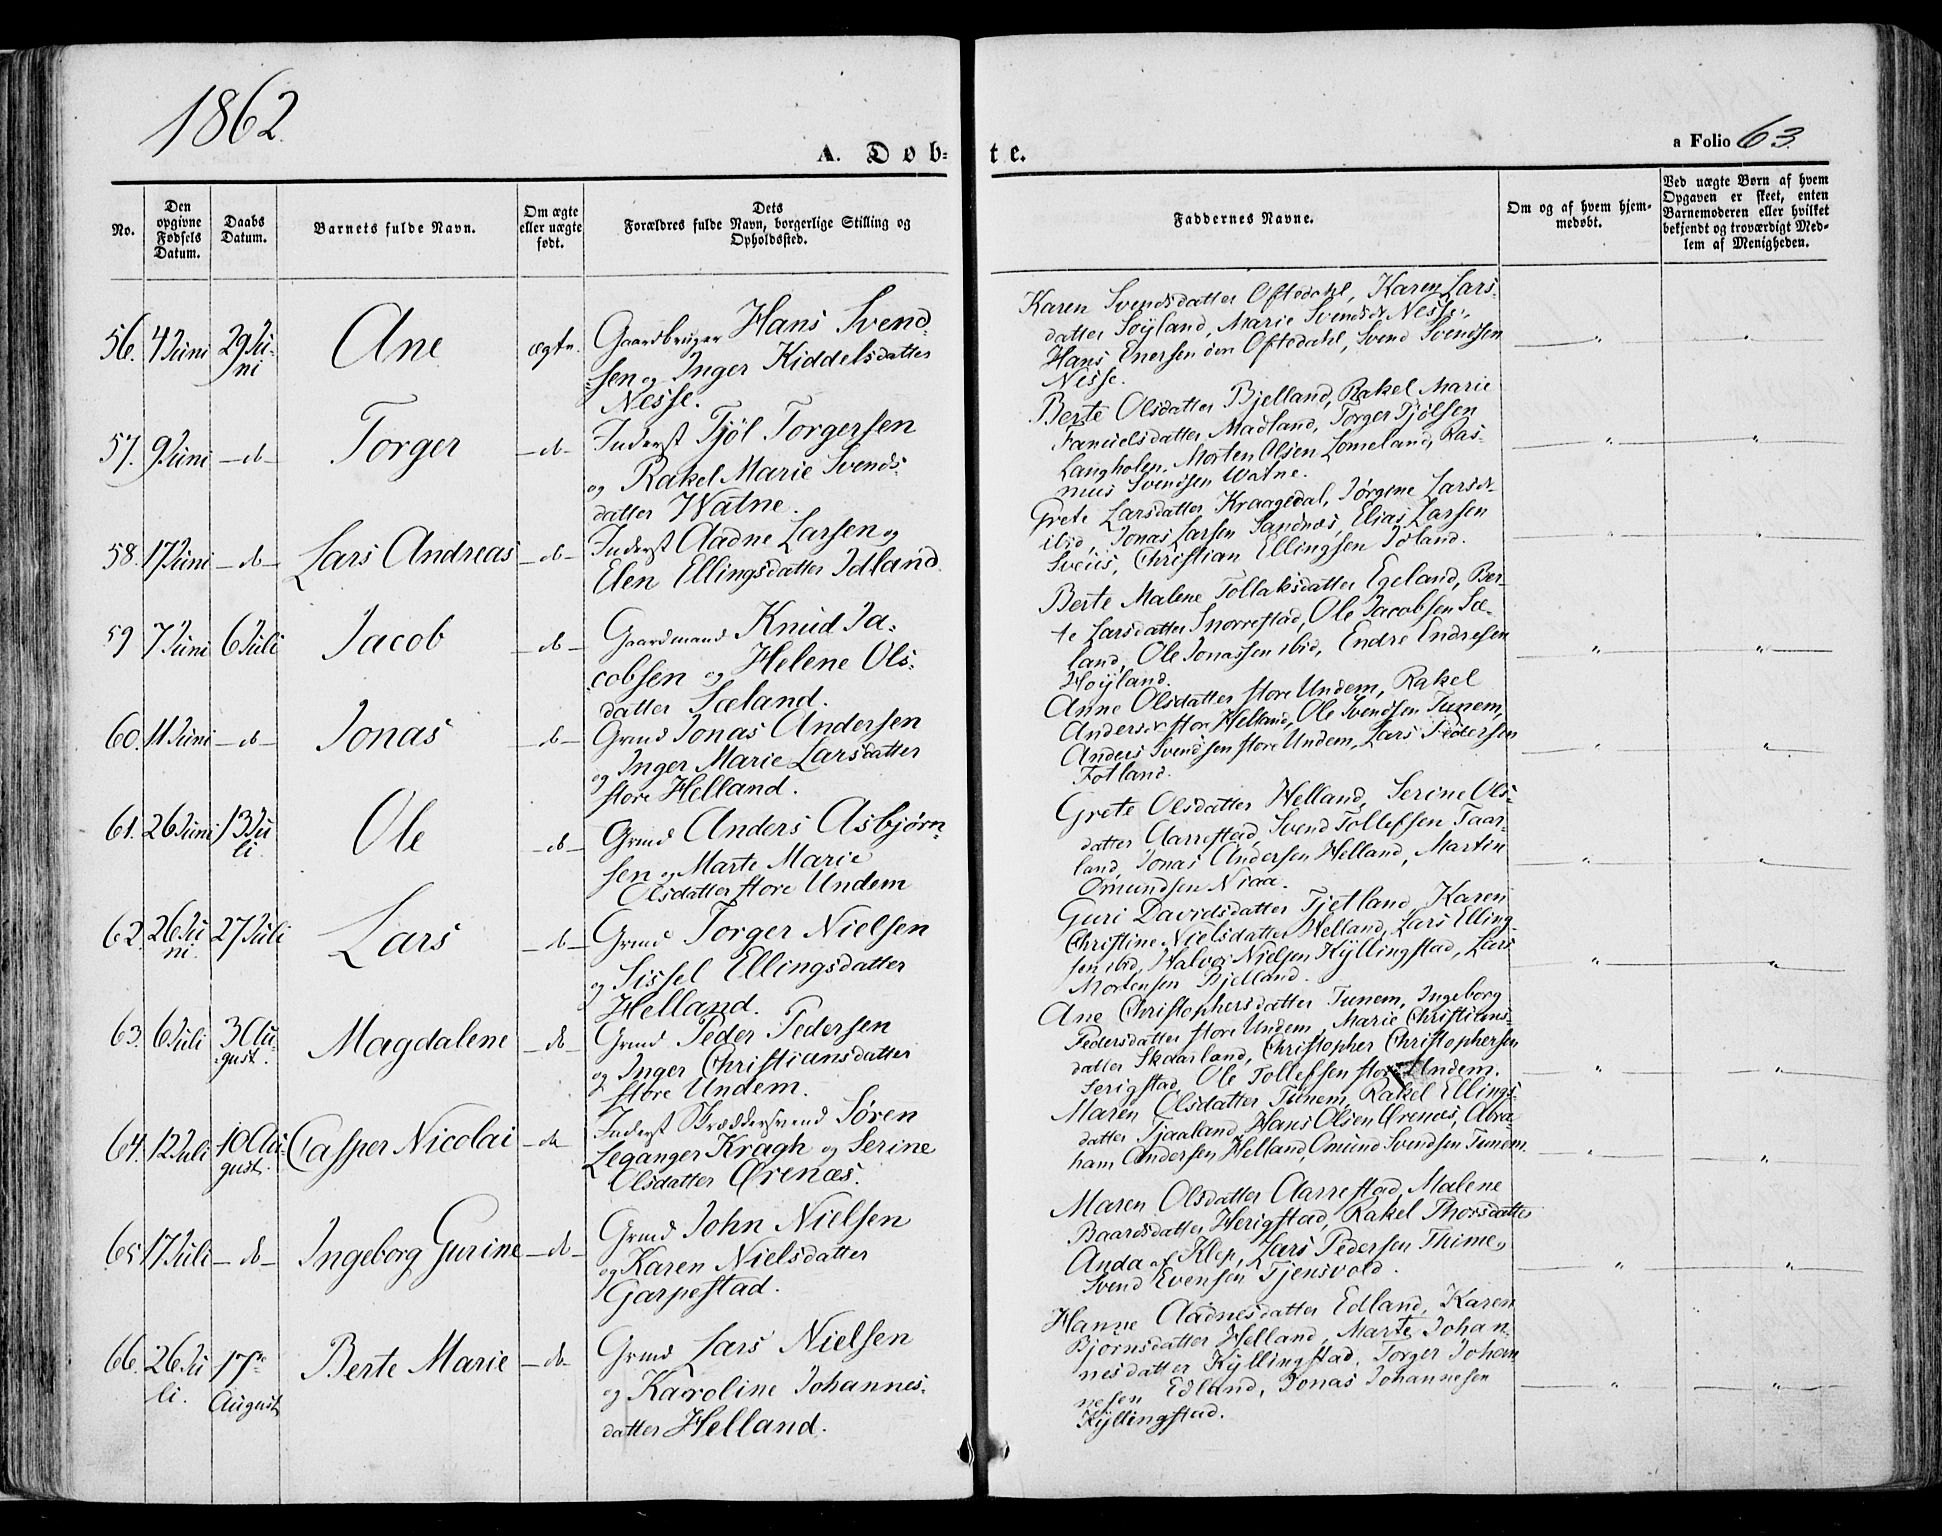 1862
A. Døb-
te.
a Folio 63.
No.
Den opgivne Fødsels Datum.
Daabs Datum.
Barnets fulde Navn.
Om ægte eller uægte født.
Dets Forældres fulde Navn, borgerlige Stilling og Opholdssted.
Faddernes Navne.
Om og af hvem hjemmedøbt.
Ved uægte Børn af hvem Opgaven er skeet, enten Barnemoderen eller hvilket bekjendt og troværdigt Medlem af Menigheden.
56. 4 Juni 29 Ju-
ni
Ane
ægte.
Gaardbruger Hans Svend-
sen og Inger Kiddelsdatter
Nesse.
Karen Svendsdatter Oftedahl, Karen Lars-
datter Søyland, Marie Svendsdr Nesse,
Hans Enersen Oftedahl, Svend Svendsen
Nesse.
57. 9 Juni - do - Torger - do -
Inderst Tjøl Torgersen
og Rakel Marie Svends-
datter Watne.
Berte Olsdatter Bjelland, Rakel Marie
Samuelsdatter Madland, Torger Tjølsen
Langholen. Morten Olsen Lomeland, Ras-
mus Svendsen Watne.
58. 17 Juni - do - Lars Andreas - do -
Inderst Aadne Larsen og
Elen Ellingsdatter Idland.
Grete Larsdatter Kraagedal, Jørgine Larsdr
ibid, Jonas Larsen Sandnæs, Elias Larsen
Sviis, Christian Ellingsen Idland.
59 7 Juni 6 Juli Jacob - do -
Gaardmand Knud Ja-
cobsen og Helene Ols-
datter Sæland.
Berte Malene Tollaksdatter Egeland, Ber-
te Larsdatter Snorrestad, Ole Jacobsen Sæ-
land, Ole Jonassen ibid, Endre Endresen
Høyland.
60. 11 Juni - do - Jonas - do -
Grmd Jonas Andersen
og Inger Marie Larsdatter
store Helland.
Anne Olsdatter store Undem, Rakel
Andersdr store Helland, Ole Svendsen Tunem,
Anders Svendsen store Undem, Lars Pedersen
Fotland.
61. 26 Juni 13 Ju
li.
Ole - do -
Grmd Anders Asbjørn-
sen og Marte Marie
Olsdatter store Undem
Grete Olsdatter Helland, Serine Ols-
datter Aarrestad, Svend Tollefsen Taar-
land, Jonas Andersen Helland, Martin
Omundsen Niaa.
62. 26 Ju
ni.
27 Juli Lars - do -
Grmd Torger Nielsen
og Sissel Ellingsdatter
Helland.
Guri Davidsdatter Tjetland, Karen
Christine Nielsdatter Helland, Lars Elling-
sen ibid, Halvor Nielsen Kyllingstad, Lars
Mortensen Bjelland.
63. 6 Juli 3 Au-
gust.
Magdalene - do -
Grmd Peder Pedersen
og Inger Christiansdatter
store Undem.
Ane Christophersdatter Tunem, Ingeborg
Pedersdatter store Undem, Marie Christians-
datter Skaarland, Christopher Christophersen
Serigstad, Ole Tollefsen store Undem.
64. 12 Juli 10 Au-
gust.
Casper Nicolai - do
Inderst Skræddersvend Søren
Leganger Kragh og Serine
Olsdatter Ørenæs.
Maren Olsdatter Tunem, Rakel Ellings-
datter Tjaaland, Hans Olsen Ørenæs, Abra
ham Andersen Helland, Omund Svendsen Tunem.
65. 17 Juli - do - Ingeborg Gurine - do -
Grmd John Nielsen
og Karen Nielsdatter
Garpestad.
Maren Olsdatter Aarrestad, Malene
Baardsdatter Herigstad, Rakel Thorsdatter
Anda af Klep, Lars Pedersen Thime,
Svend Evensen Tjensvold.
66. 26 Ju
li.
17de
August
Berte Marie - do -
Grmd Lars Nielsen
og Karoline Johannes-
datter Helland.
Hanne Aadnesdatter Edland, Karen
Bjørnsdatter Helland, Marte Johan-
nesdatter Kyllingstad, Torger Johan
nesen Edland, Jonas Johannesen
Kyllingstad.